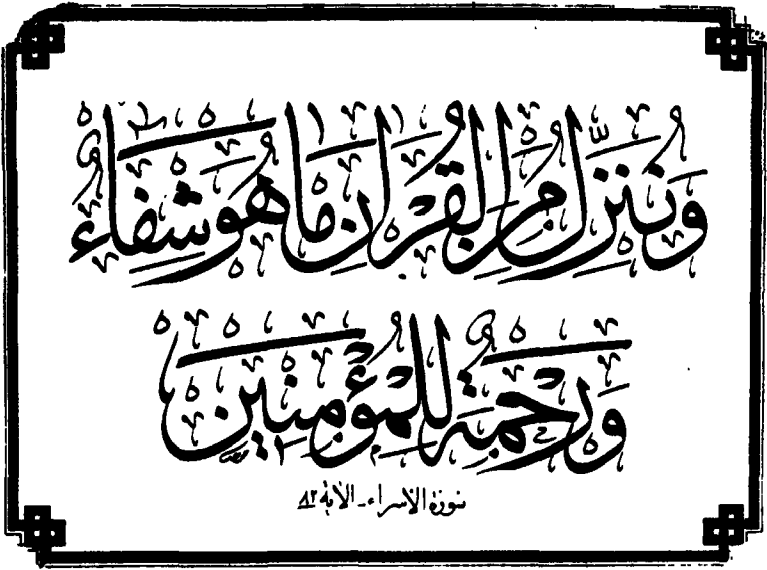 وَنُنَزِّلُ مِنَ القُرْآنِ مَا هُوَ شِفَاءٌ
وَرَحْمَةٌ لِلْمُؤْمِنِينَ
سورة الاسراء - الآية ٨٢